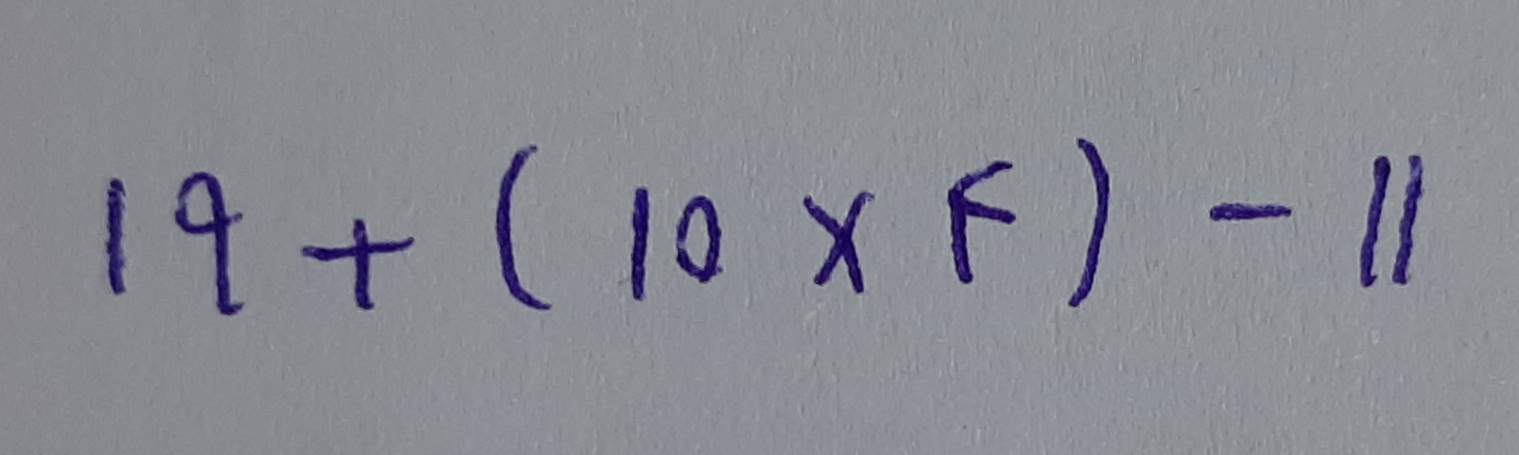 19 + ( 10 x F ) - 11